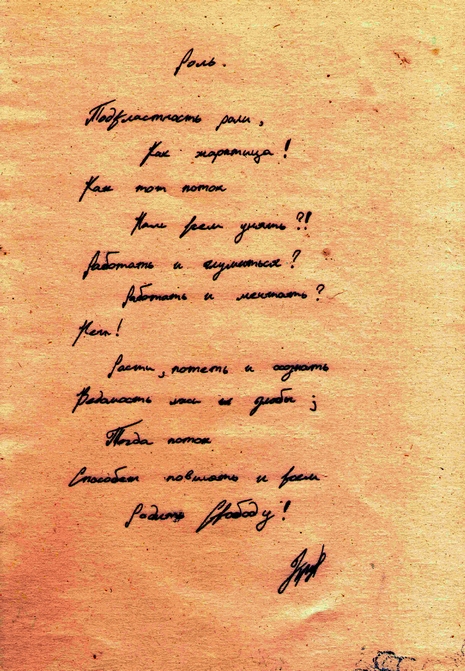 Роль.
Подвластность роли,
Как жар-птица!
Как тот поток
Нам всем унять?!
Работать и глумиться?
Работать и мечтать?
Нет!
Расти, потеть и создать
Ведомость лжи и злобы;
Тогда поток
Способен повлиять и всем
Родить Свободу!